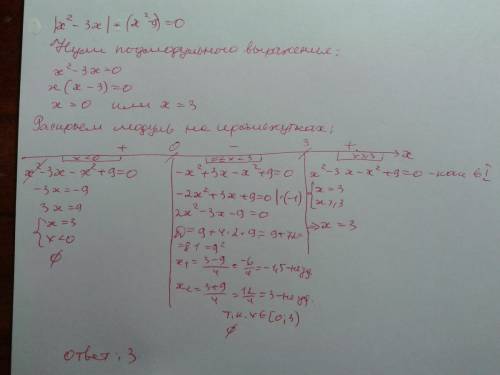 |x² - 3x| - (x² - 9) = 0
Нули подмодульного выражения:
x² - 3x = 0
x(x - 3) = 0
x = 0 или x = 3
Раскроем модуль на промежутках:
+ 0 - 3 + x
x<0 0≤x<3 x≥3
x² - 3x - x² + 9 = 0
-3x = -9
3x = 9
{ x = 3
x < 0
∅
-x² + 3x - x² + 9 = 0
-2x² + 3x + 9 = 0 | · (-1)
2x² - 3x - 9 = 0
D = 9 + 4·2·9 = 9 + 72 =
= 81 = 9²
x₁ = (3-9)/4 = -6/4 = -1,5 - не уд.
x₂ = (3+9)/4 = 12/4 = 3 - не уд.
т.к. x ∈ [0; 3)
∅
x² - 3x - x² + 9 = 0 - как в I
{ x = 3
x ≥ 3
⇒ x = 3
Ответ: 3